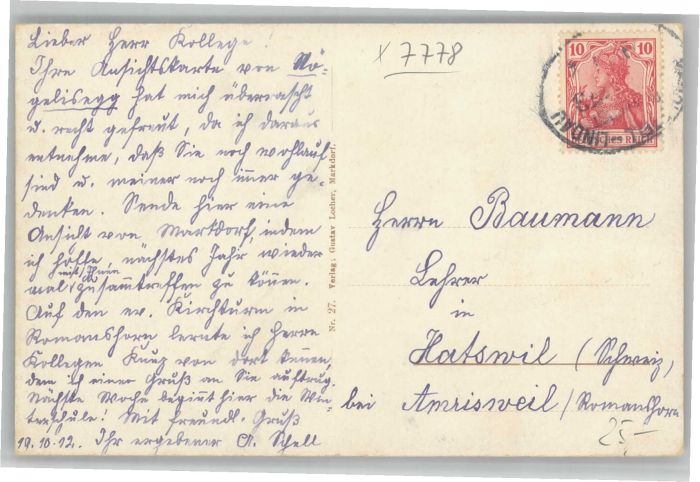 Lieber Herr Kollege!
Ihre Ansichtskarte von Vö-
gelisegg hat mich überrascht
u. recht gefreut, da ich daraus
entnehme, daß Sie noch wohlauf
sind u. meiner noch immer ge-
denken. Sende hier eine
Ansicht von Markdorf, indem
ich hoffe, nächstes Jahr wieder
mal mit Ihnen zusammtreffen zu können.
Auf den er. Kirchturm in
Romanshorn lernte ich Herrn
Kollegen Knup von dort kennen,
dem ich einen Gruß an Sie auftrug.
Nächste Woche beginnt hier die Win-
terschule! Mit freundl. Gruß
19.10.12. Ihr ergebener A. Schell
Nr. 27. Verlag: Gustav Locher, Markdorf.
x 7778
10 10
DEUTSCHES REICH
LINDAU
Herrn Baumann
Lehrer
in
Hatswil (Schweiz,
bei Amrisweil / Romanshorn
25,-